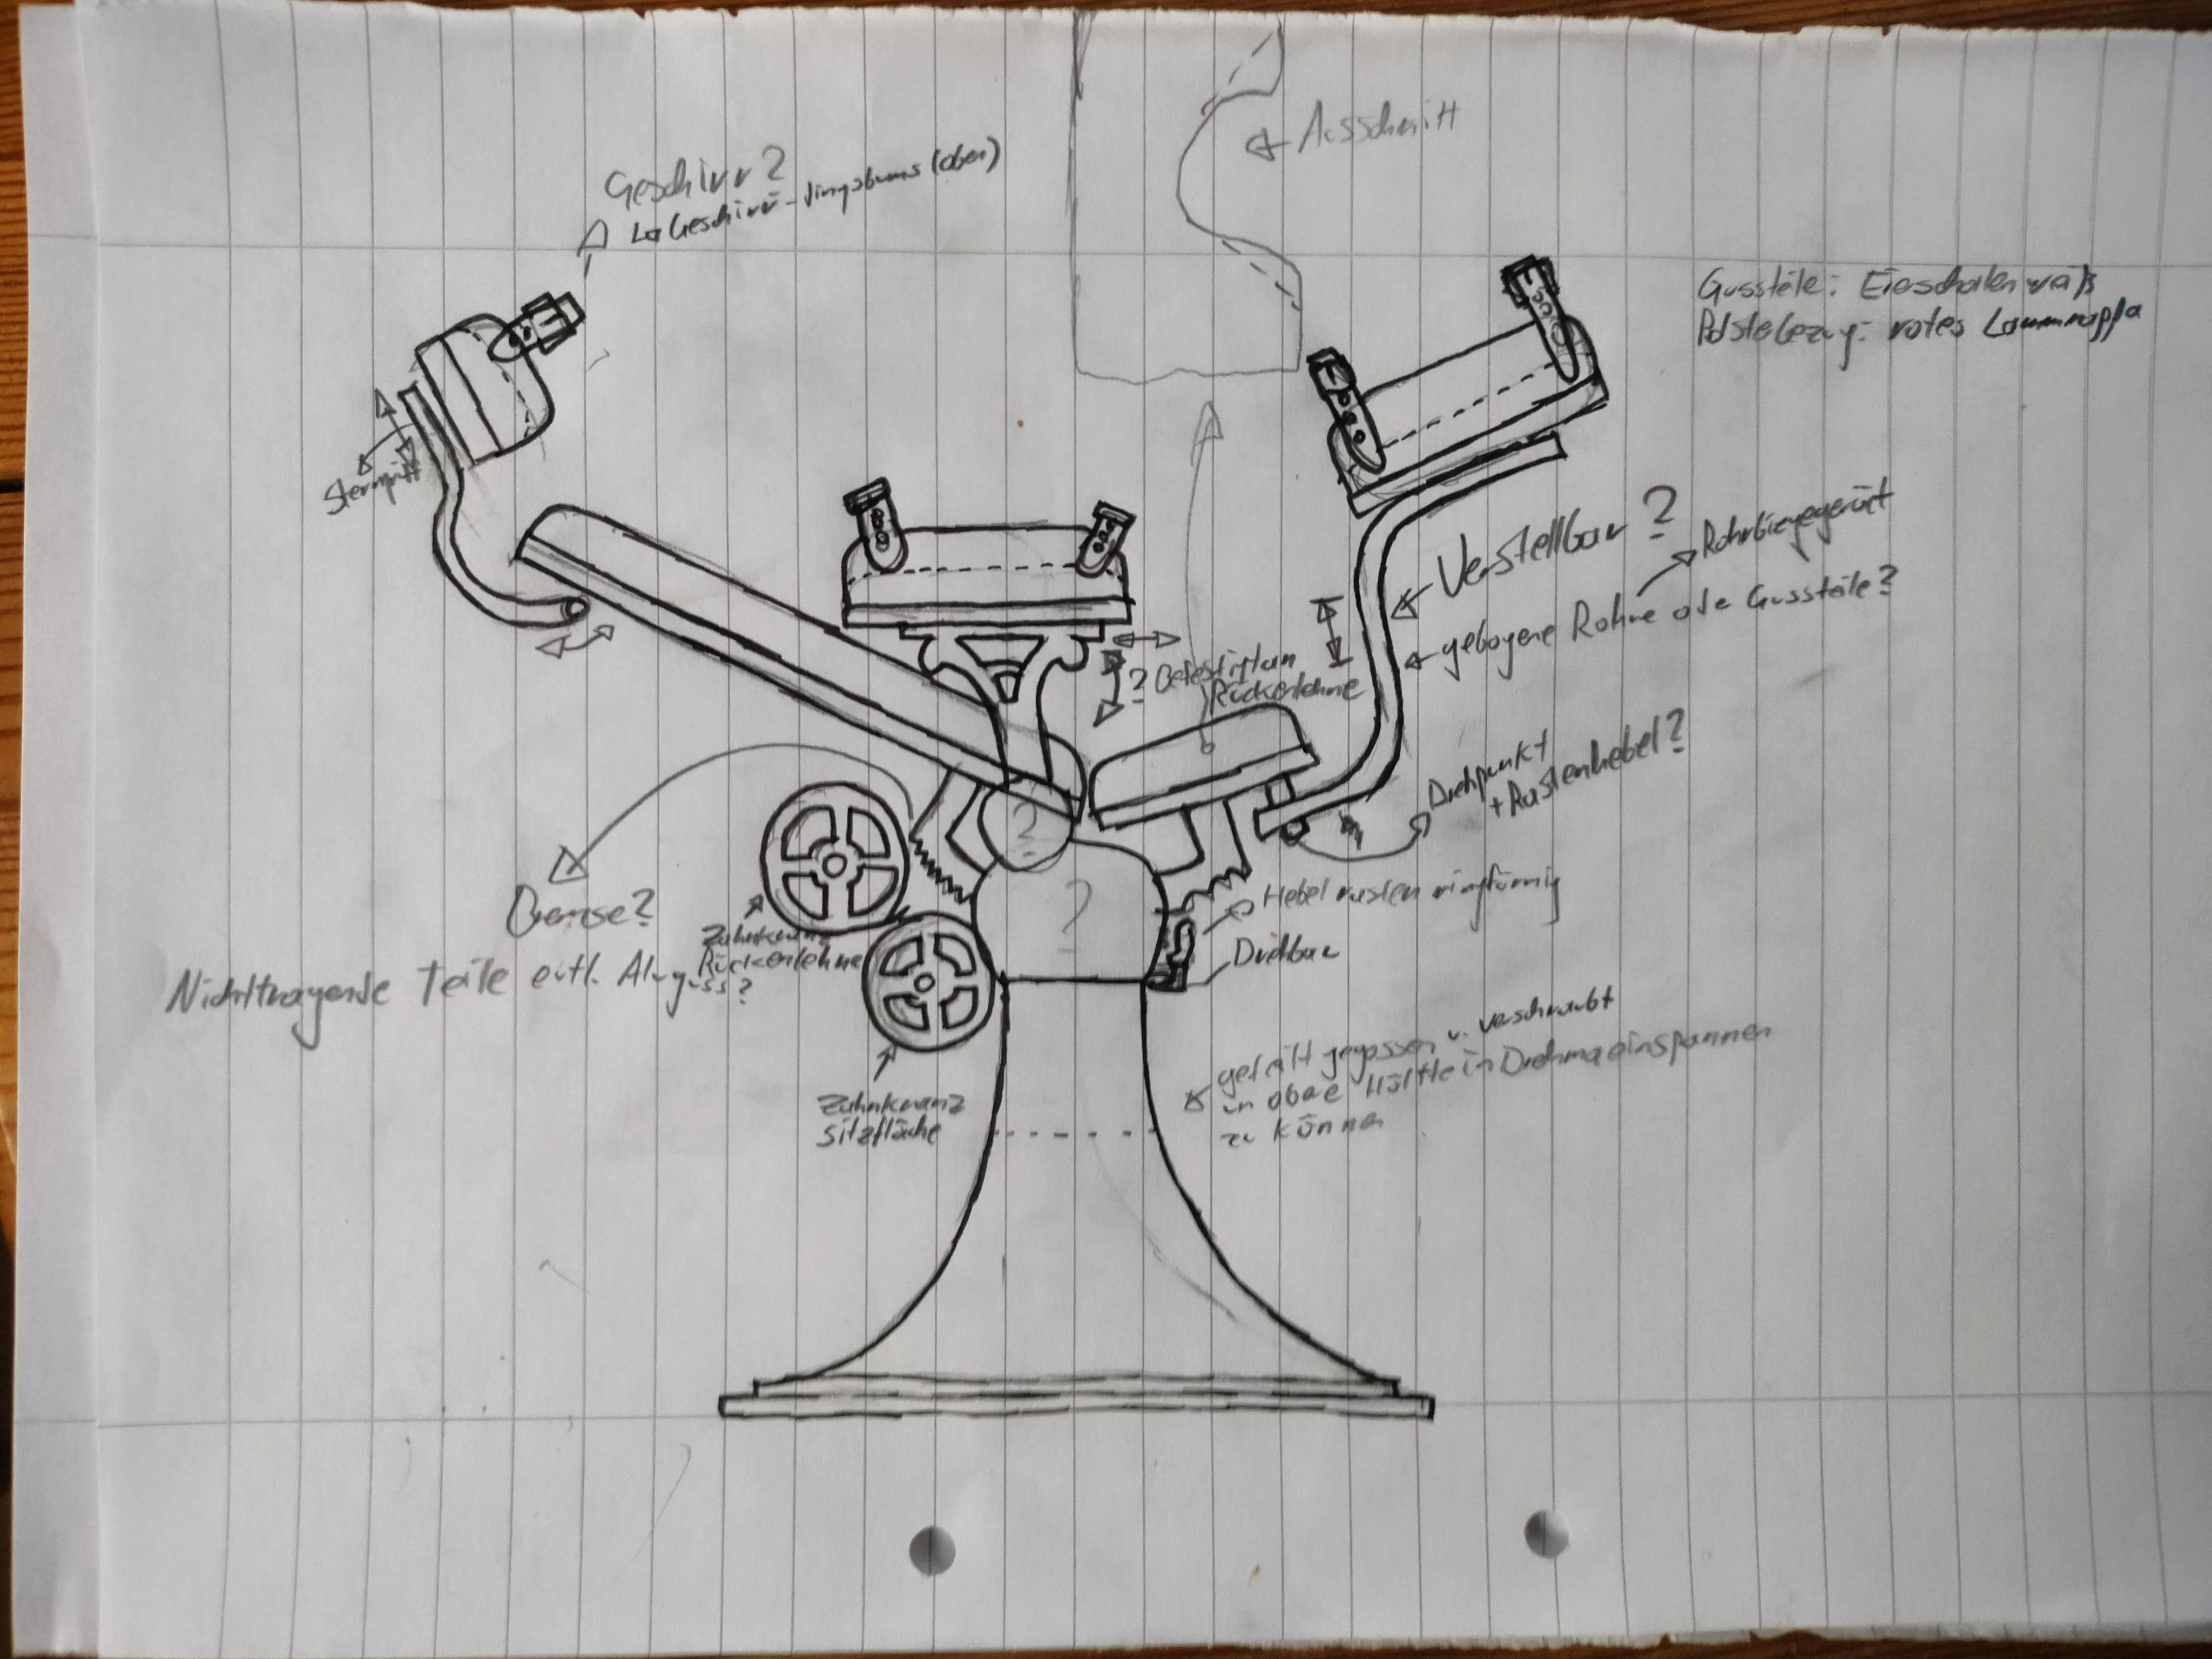 Ausschnitt
Geschirr?
Geschirr-dingsbums (oben)
Gussteile: Eierschalenweiß
Polsterbezug: rotes Lammnappa
Verstellbar?
Rohrbiegegerät
gebogene Rohre oder Gussteile?
? Befestigt an
Rückenlehne
Drehpunkt
+ Rastenhebel?
?
?
Bremse?
Zahnkranz
Rückenlehne
Hebel rasten ringförmig
Drehbar
Nichttragende Teile evtl. Aluguss?
Zahnkranz
Sitzfläche
geteilt gegossen u. verschraubt
um obere Hälfte in Drehma einspannen
zu können